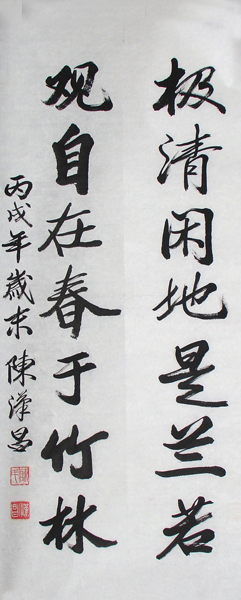 极清闲地是兰若
观自在春于竹林
丙戌年岁末陈汉昌